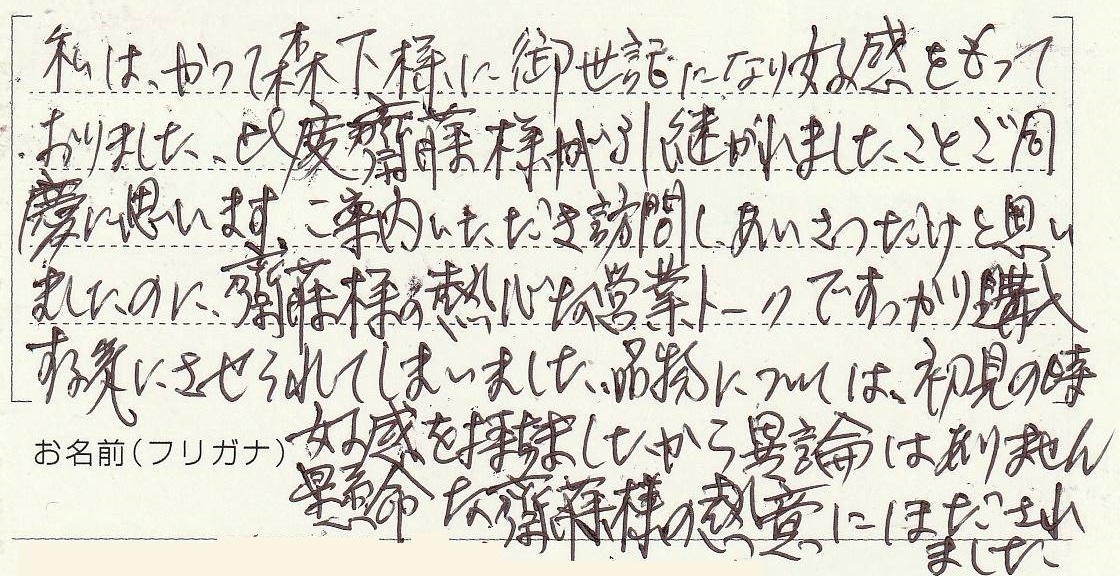 私は、かつて森下様に御世記になり好感をもって
おりました、此度齋藤様が引継がれましたことご同
慶に思います。ご案内いただき訪問し、あいさつだけと思い
ましたのに、齋藤様の熱心な営業トークですっかり購入
する気にさせられてしまいました、品物については、初見の時
お名前(フリガナ)
好感を持ましたから異論はありません
懸命な齋藤様の熱意にほだされ
ました